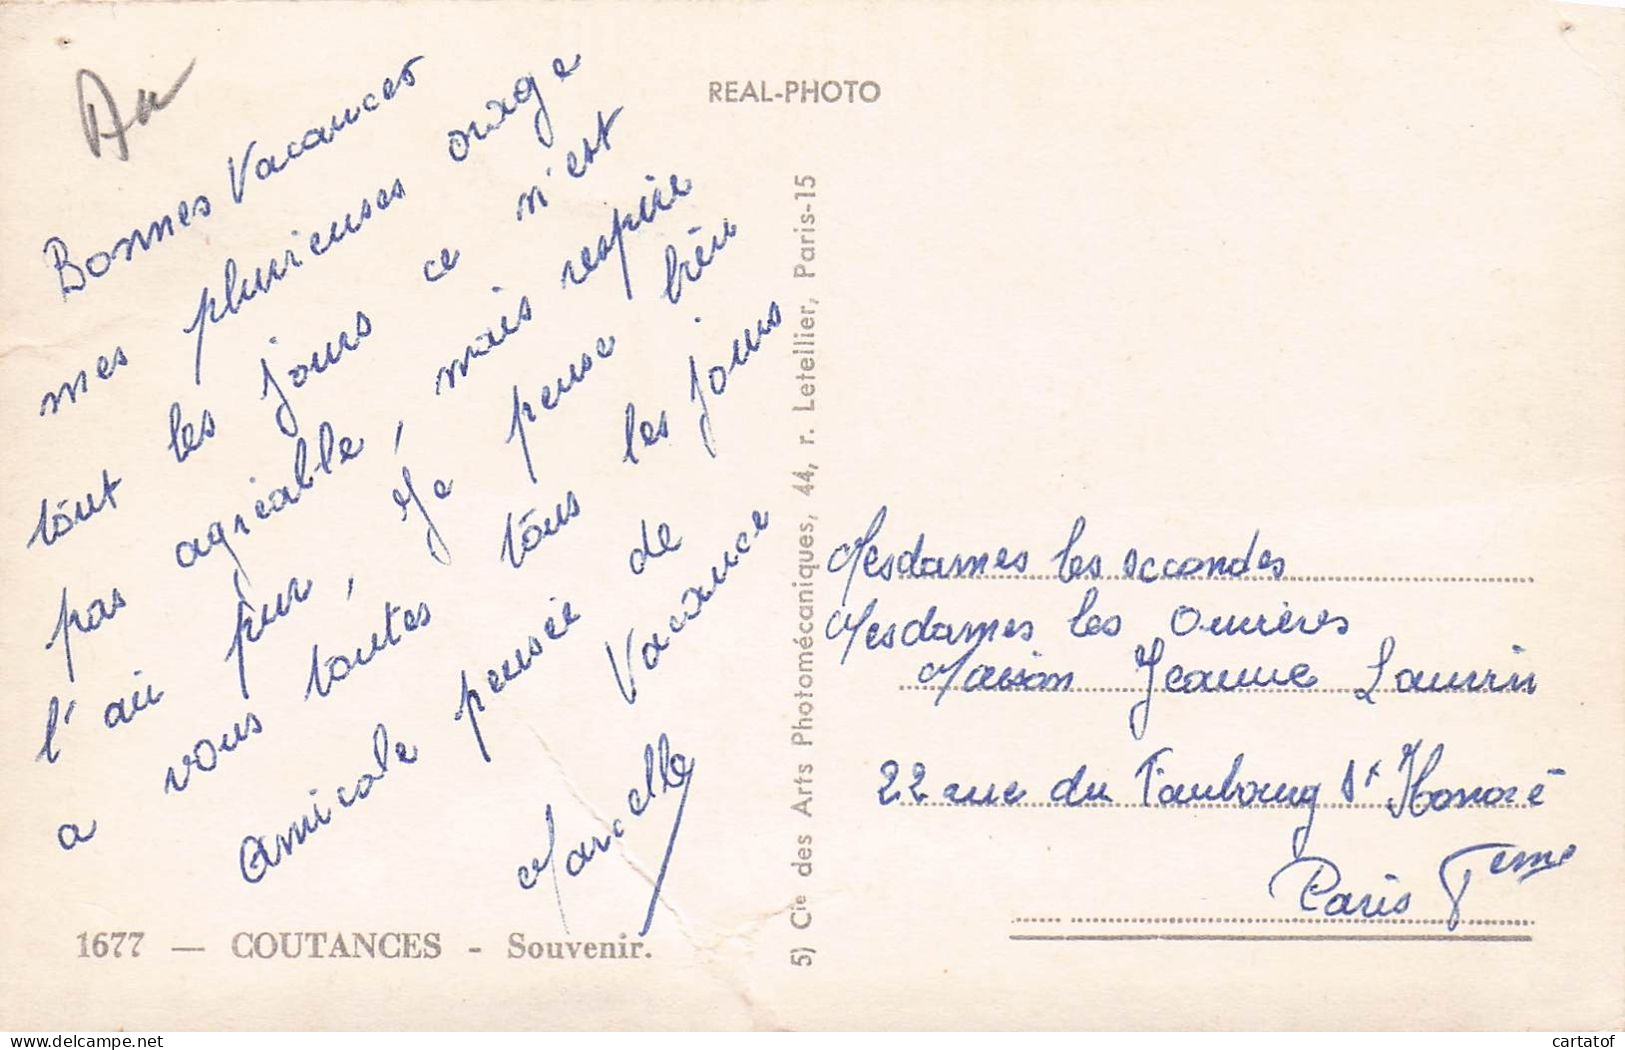 Bonnes Vacances
mes pluvieuses orage
tout les jours ce n'est
pas agréable, mais respire
l'air pur, Je pense bien
a vous toutes tous les jours
Amicale pensée de
Vacance
Marcelle
1677 — COUTANCES - Souvenir.
REAL-PHOTO
5) Cie des Arts Photomécaniques, 44, r. Letellier, Paris-15
Mesdames les secondes
Mesdames les Ouvrières
Maison Jeanne Lanvin
22 rue du Faubourg St Honoré
Paris
cartatof